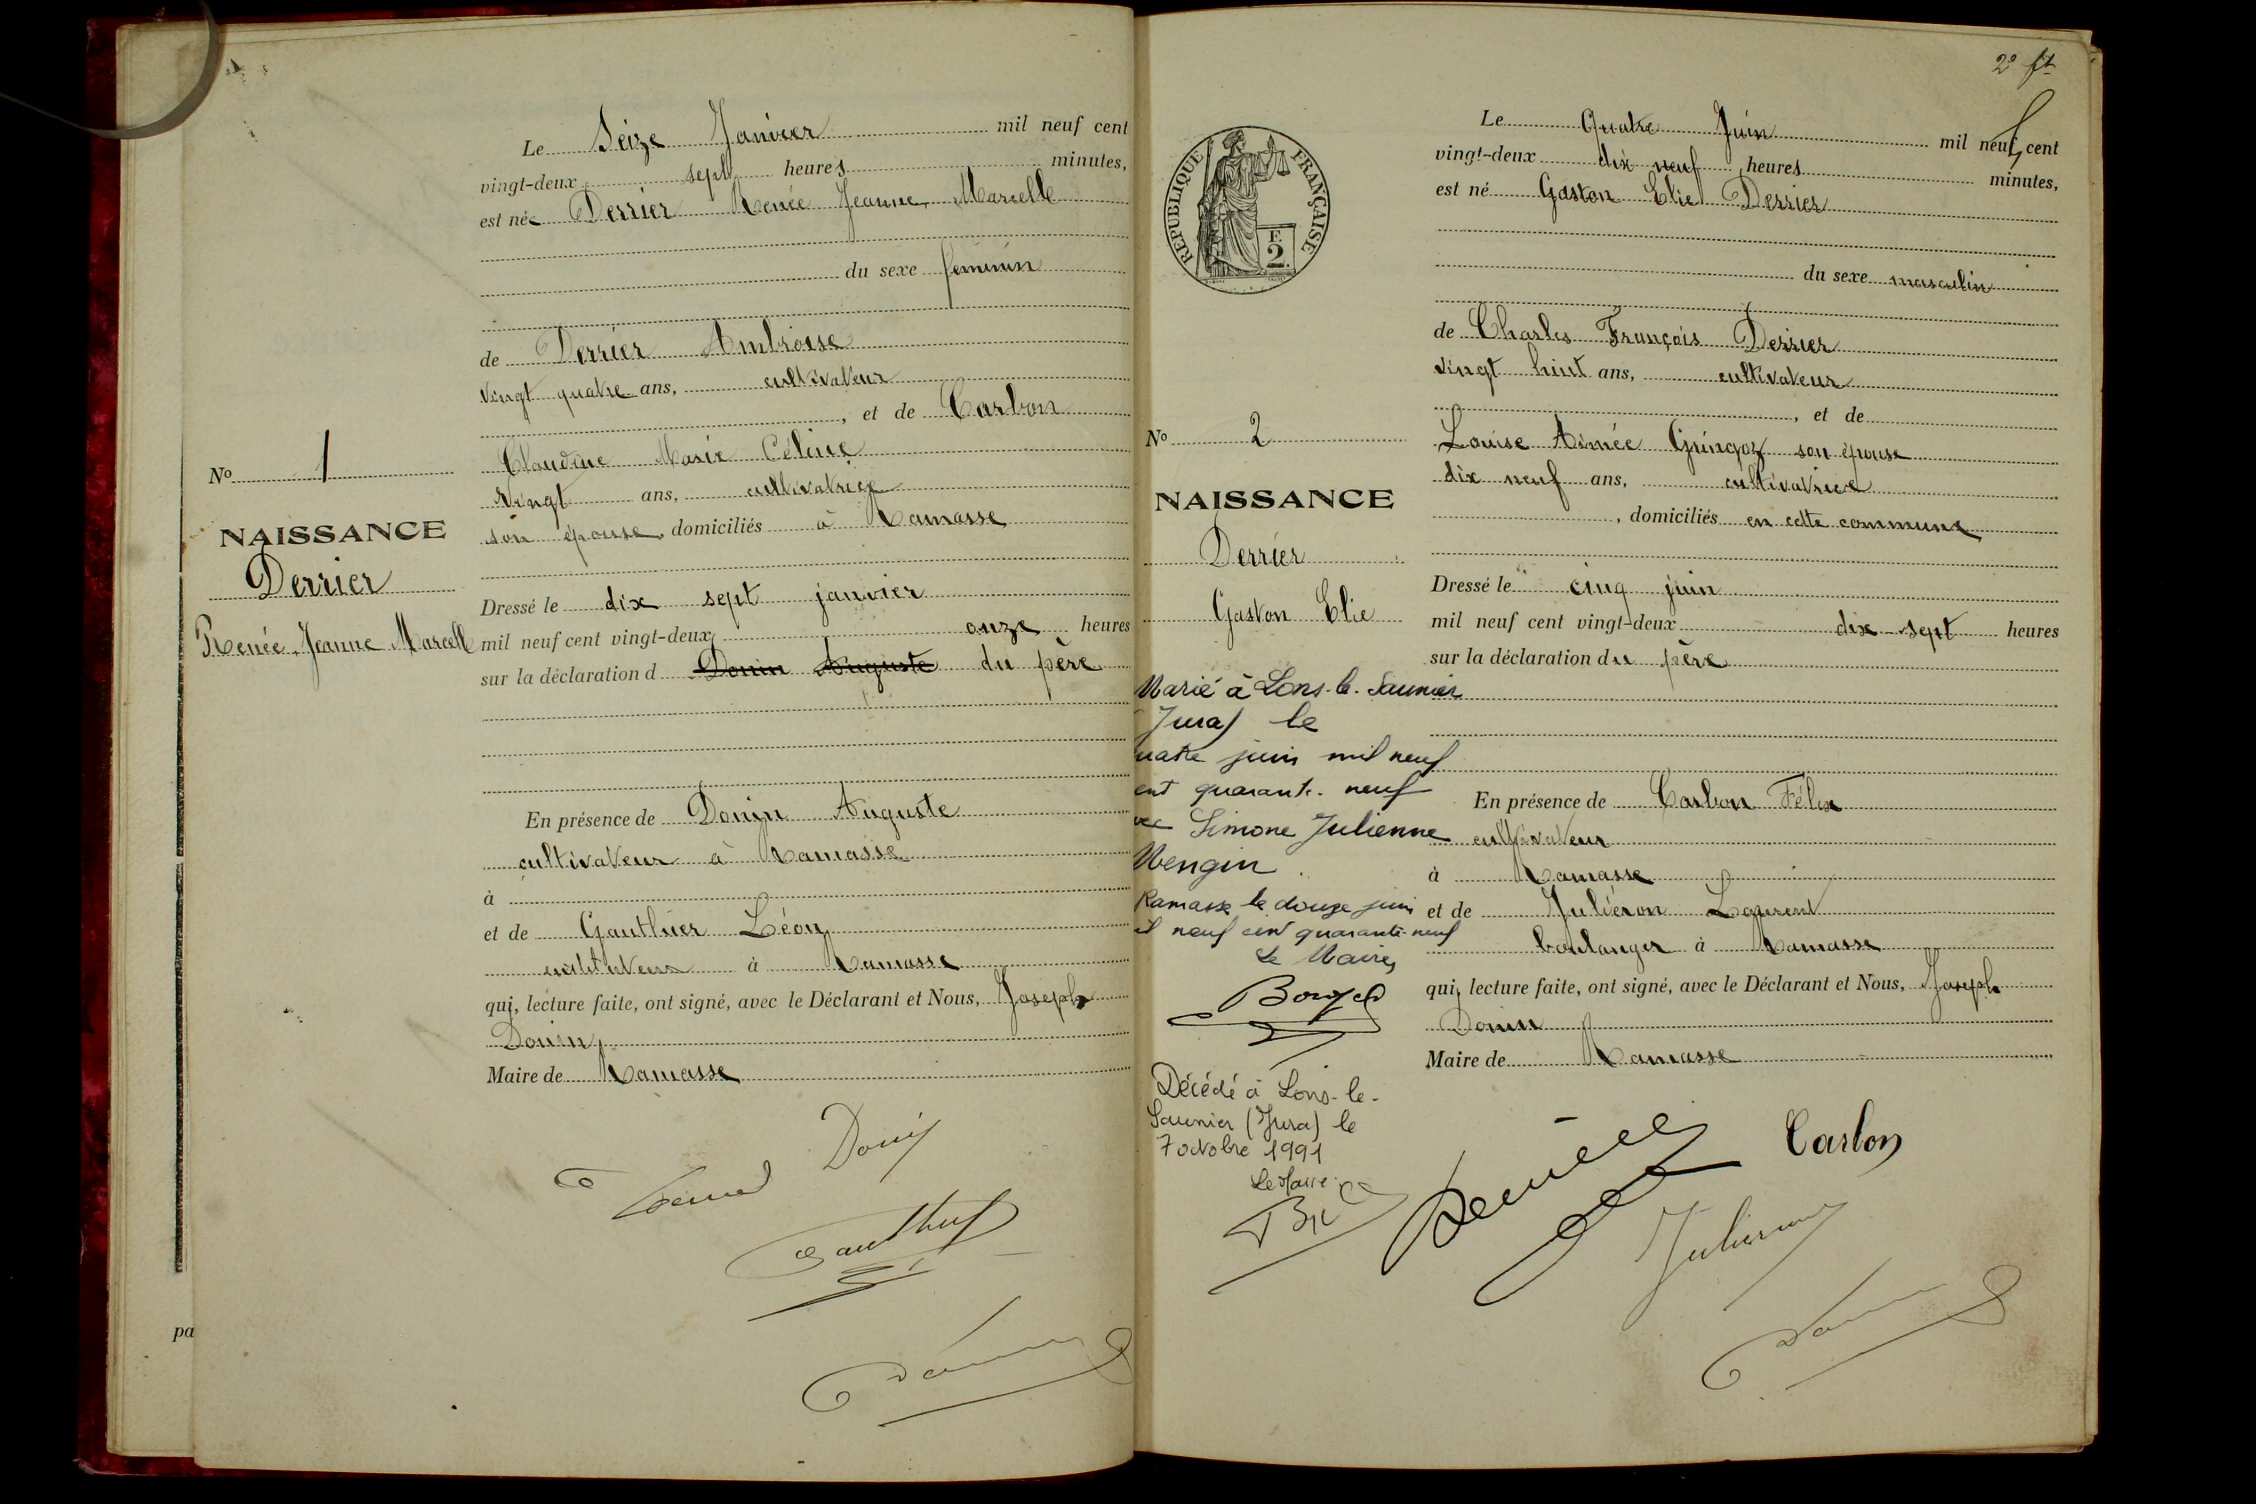 Le Seize Janvier mil neuf cent
vingt-deux sept heures minutes,
est née Derrier Renée Jeanne Marcelle
du sexe féminin
de Derrier Ambroise
vingt quatre ans, cultivateur
, et de Carbon
Claudine Marie Céline
vingt ans, cultivatrice
son épouse domiciliés à Ramasse
No 1
NAISSANCE
Derrier
Renée Jeanne Marcelle
Dressé le dix sept janvier
mil neuf cent vingt-deux onze heures
sur la déclaration d Donin Auguste du père
En présence de Donin Auguste
cultivateur à Ramasse
à
et de Gauthier Léon
à Ramasse
qui, lecture faite, ont signé, avec le Déclarant et Nous, Joseph
Donin
Maire de Ramasse
Donin
pa
2e ft
RÉPUBLIQUE FRANÇAISE
F.
2
Le Quatre Juin mil neuf cent
vingt-deux dix neuf heures minutes,
est né Gaston Elie Derrier
du sexe masculin
de Charles François Derrier
vingt huit ans, cultivateur
, et de
Louise Aimée Gringoz son épouse
dix neuf ans, cultivatrice
, domiciliés en cette commune
No 2
NAISSANCE
Derrier
Gaston Elie
Dressé le cinq juin
mil neuf cent vingt-deux dix-sept heures
sur la déclaration du père
En présence de Carbon Félix
cultivateur
à Ramasse
et de Juliéron Laurent
boulanger à Ramasse
qui, lecture faite, ont signé, avec le Déclarant et Nous, Joseph
Donin
Maire de Ramasse
Marié à Lons-le-Saunier
Jura) le
uatre juin mil neuf
ent quarante-neuf
vec Simone Julienne
Mengin
Ramasse le douze juin
il neuf cent quarante-neuf
Le Maire,
Décédé à Lons-le-
Saunier (Jura) le
7 octobre 1991
Le Maire
Carbon